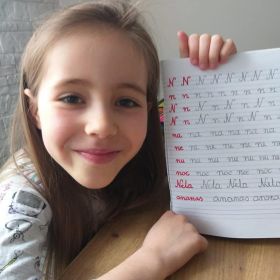 N N N N N N N N
n n n n n n n n n
N n N n N n N n
N n N n N n N n
na na na na na na
ne ne ne ne ne ne
nu nu nu nu nu nu
noc noc noc noc
Nela Nela Nela Nela
ananas ananas anana